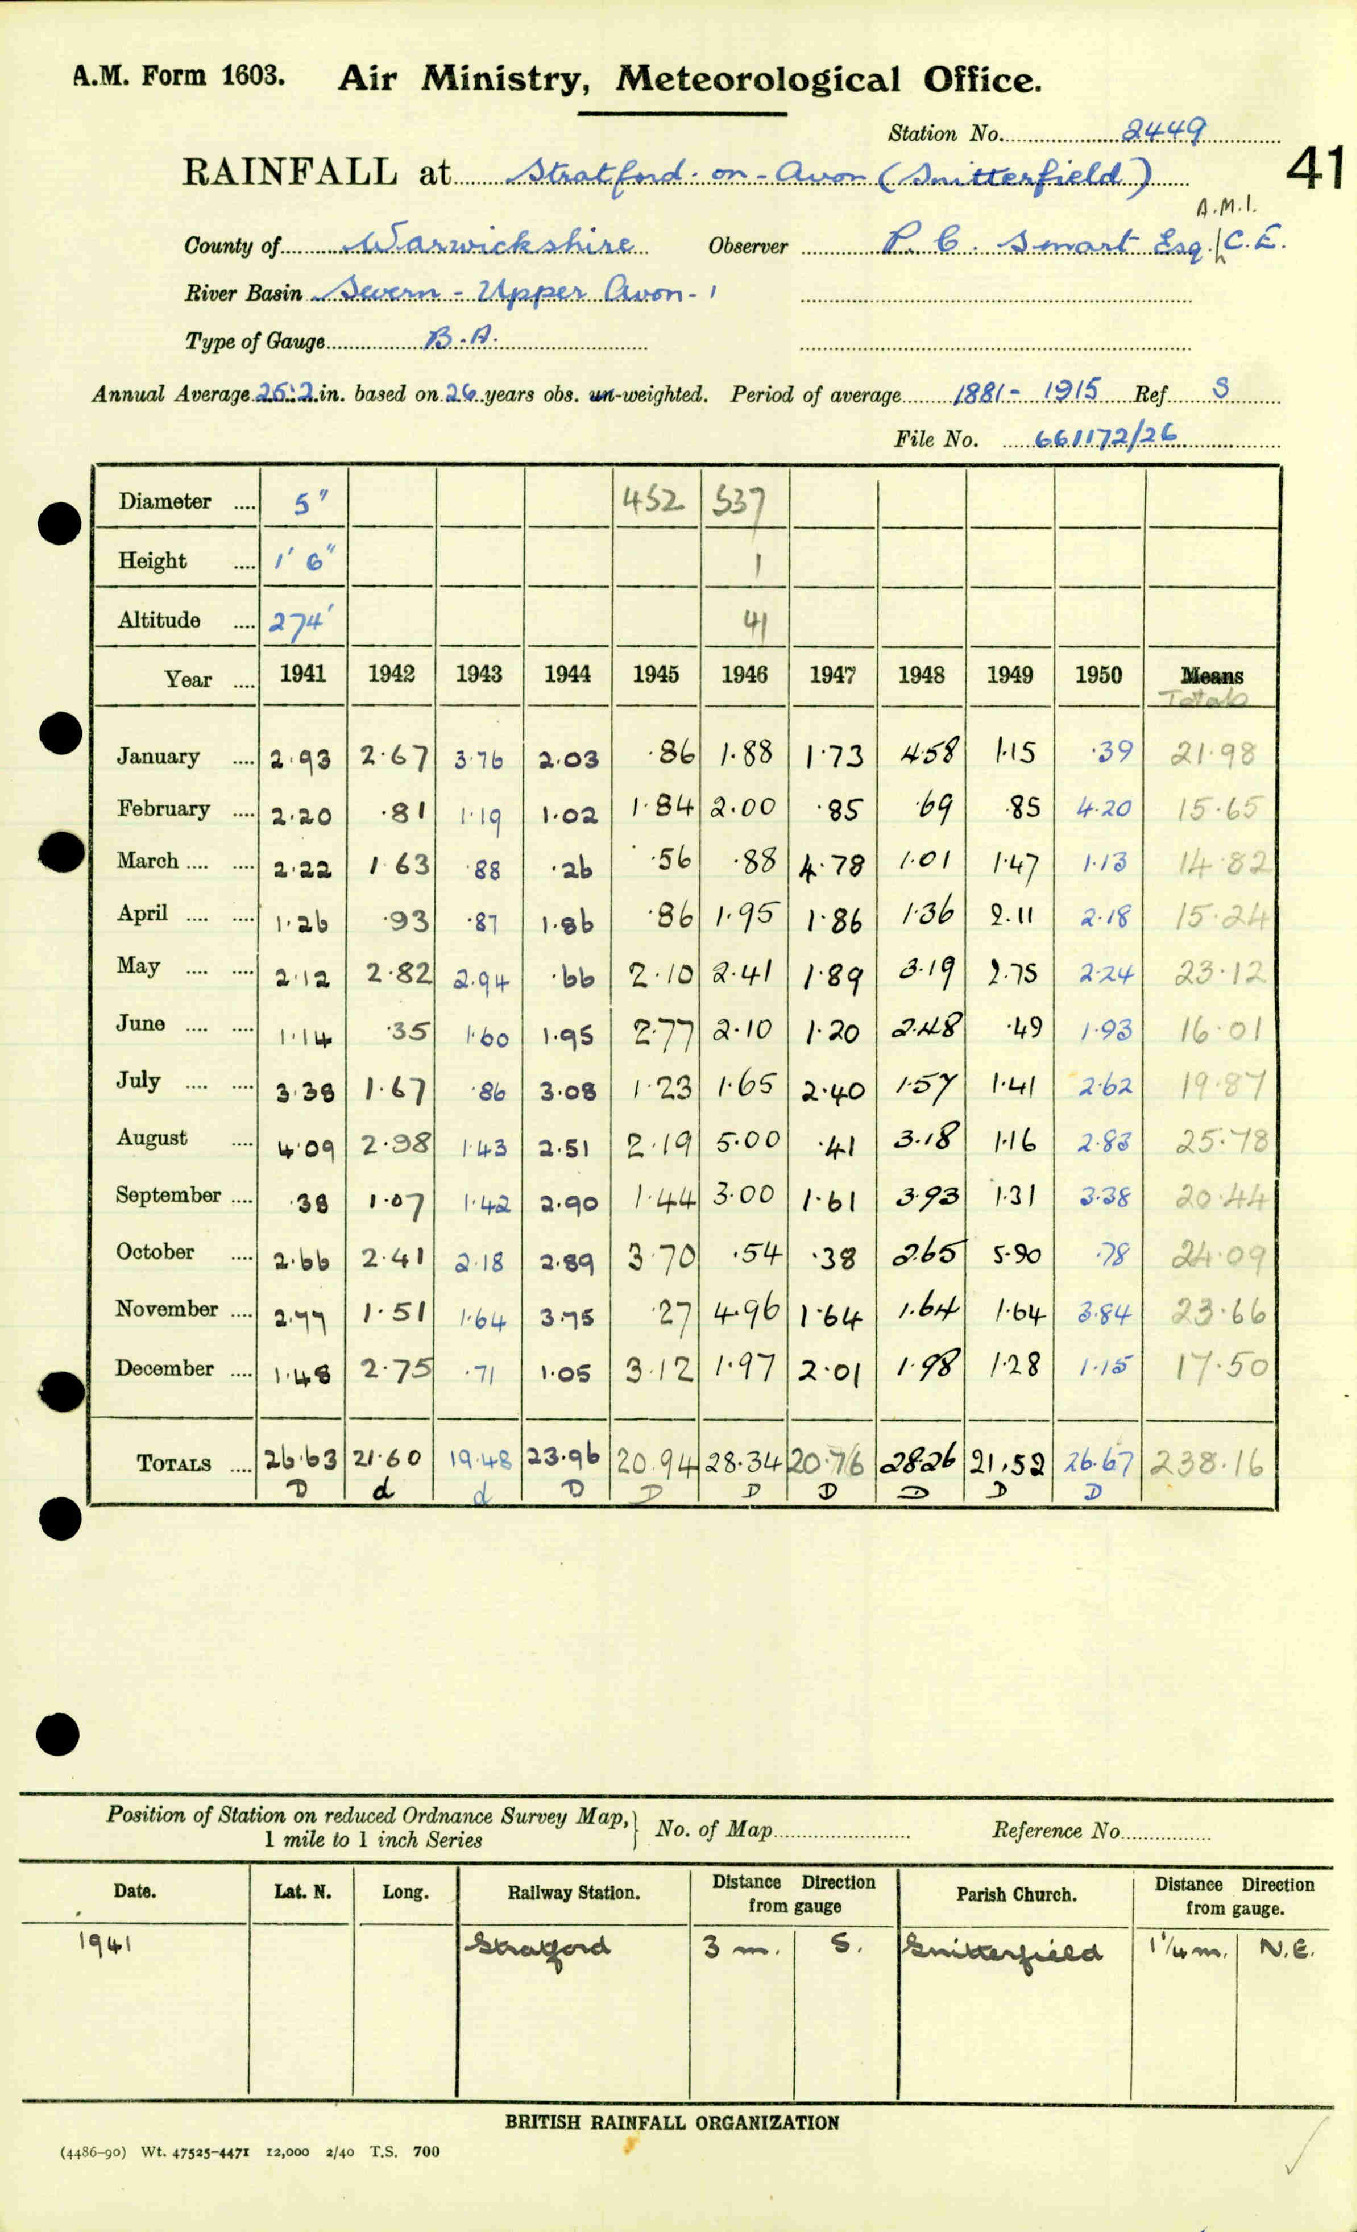 A.M. Form 1603. Air Ministry, Meteorological Office.
Station No. 2449
41
RAINFALL at Stratford-on-Avon (Snitterfield)
A.M.I.
County of Warwickshire Observer P. C. Smart Esq. C.E.
River Basin Severn - Upper Avon - 1
Type of Gauge B.A.
Annual Average 25.2 in. based on 26 years obs. un-weighted. Period of average 1881 - 1915 Ref S
File No. 661172/26
Diameter .... 5" 452 537
Height .... 1' 6" 1
Altitude .... 274' 41
Year .... 1941 1942 1943 1944 1945 1946 1947 1948 1949 1950 Means
Totals
January .... 2.93 2.67 3.76 2.03 .86 1.88 1.73 4.58 1.15 .39 21.98
February .... 2.20 .81 1.19 1.02 1.84 2.00 .85 .69 .85 4.20 15.65
March .... .... 2.22 1.63 .88 .26 .56 .88 4.78 1.01 1.47 1.13 14.82
April .... .... 1.26 .93 .87 1.86 .86 1.95 1.86 1.36 2.11 2.18 15.24
May .... .... 2.12 2.82 2.94 .66 2.10 2.41 1.89 3.19 2.75 2.24 23.12
June .... .... 1.14 .35 1.60 1.95 2.77 2.10 1.20 2.48 .49 1.93 16.01
July .... .... 3.38 1.67 .86 3.08 1.23 1.65 2.40 1.57 1.41 2.62 19.87
August .... 4.09 2.98 1.43 2.51 2.19 5.00 .41 3.18 1.16 2.83 25.78
September .... .38 1.07 1.42 2.90 1.44 3.00 1.61 3.93 1.31 3.38 20.44
October .... 2.66 2.41 2.18 2.89 3.70 .54 .38 2.65 5.90 .78 24.09
November .... 2.77 1.51 1.64 3.75 .27 4.96 1.64 1.64 1.64 3.84 23.66
December .... 1.48 2.75 .71 1.05 3.12 1.97 2.01 1.98 1.28 1.15 17.50
TOTALS .... 26.63 21.60 19.48 23.96 20.94 28.34 20.76 28.26 21.52 26.67 238.16
D d d D D D D D D D
Position of Station on reduced Ordnance Survey Map, No. of Map Reference No.
1 mile to 1 inch Series
Date. Lat. N. Long. Railway Station. Distance Direction from gauge Parish Church. Distance Direction from gauge.
1941 Stratford 3 m. S. Snitterfield 1 1/4 m. N.E.
BRITISH RAINFALL ORGANIZATION
(4486-90) Wt. 47525-4471 12,000 2/40 T.S. 700